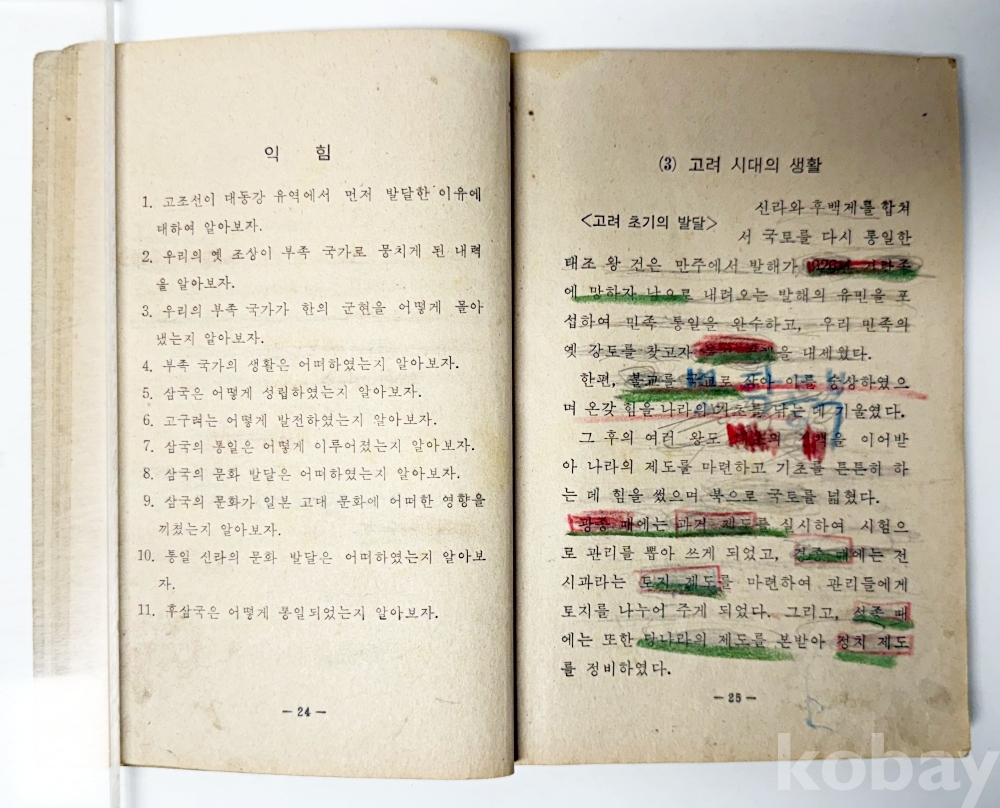 익 힘
1. 고조선이 대동강 유역에서 먼저 발달한 이유에
대하여 알아보자.
2. 우리의 옛 조상이 부족 국가로 뭉치게 된 내력
을 알아보자.
3. 우리의 부족 국가가 한의 군현을 어떻게 몰아
냈는지 알아보자.
4. 부족 국가의 생활은 어떠하였는지 알아보자.
5. 삼국은 어떻게 성립하였는지 알아보자.
6. 고구려는 어떻게 발전하였는지 알아보자.
7. 삼국의 통일은 어떻게 이루어졌는지 알아보자.
8. 삼국의 문화 발달은 어떠하였는지 알아보자.
9. 삼국의 문화가 일본 고대 문화에 어떠한 영향을
끼쳤는지 알아보자.
10. 통일 신라의 문화 발달은 어떠하였는지 알아보
자.
11. 후삼국은 어떻게 통일되었는지 알아보자.
— 24 —
(3) 고려 시대의 생활
<고려 초기의 발달>
신라와 후백제를 합쳐
서 국토를 다시 통일한
태조 왕 건은 만주에서 발해가
에 망하자 남으로 내려오는 발해의 유민을 포
섭하여 민족 통일을 완수하고, 우리 민족의
옛 강토를 찾고자 을 내세웠다.
한편, 불교를 국교로 삼아 이를 숭상하였으
며 온갖 힘을 나라의 기초를 닦는 데 기울였다.
그 후의 여러 왕도 을 이어받
아 나라의 제도를 마련하고 기초를 튼튼히 하
는 데 힘을 썼으며 북으로 국토를 넓혔다.
광종 때에는 과거 제도를 실시하여 시험으
로 관리를 뽑아 쓰게 되었고, 경종 때에는 전
시과라는 토지 제도를 마련하여 관리들에게
토지를 나누어 주게 되었다. 그리고, 성종 때
에는 또한 당나라의 제도를 본받아 정치 제도
를 정비하였다.
— 25 —
kobay